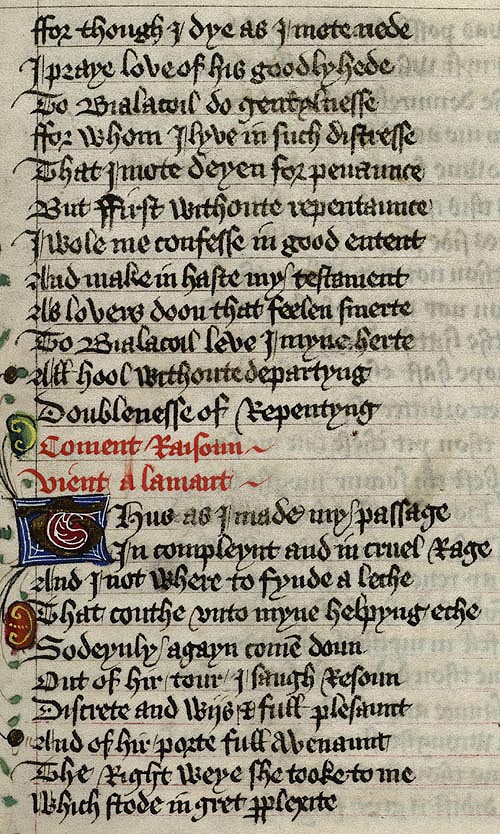 ffor though I dye as I mote nede
I praye love of his goodlyhede
To Bialacoil do gentylnesse
ffor whom I lyve in such distresse
That I mote deyen for penaunce
But ffirst withoute repentaunce
I wole me confesse in good entent
And make in haste my testament
As lovers doon that feelen smerte
To Bialacoil leve I myne herte
All hool withoute departyng
Doublenesse of Repentyng
Coment Raisoun
vient a lamant
Thus as I made my passage
In compleynt and in cruel Rage
And I not where to fynde a leche
That couthe vnto myne helpyng eche
Sodeynly agayn comē doun
Out of hir tour I saugh Resoun
Discrete and wijs & full plesaunt
And of hir porte full Avenaunt
The Right weye she tooke to me
Which stode in gret ꝑplexite